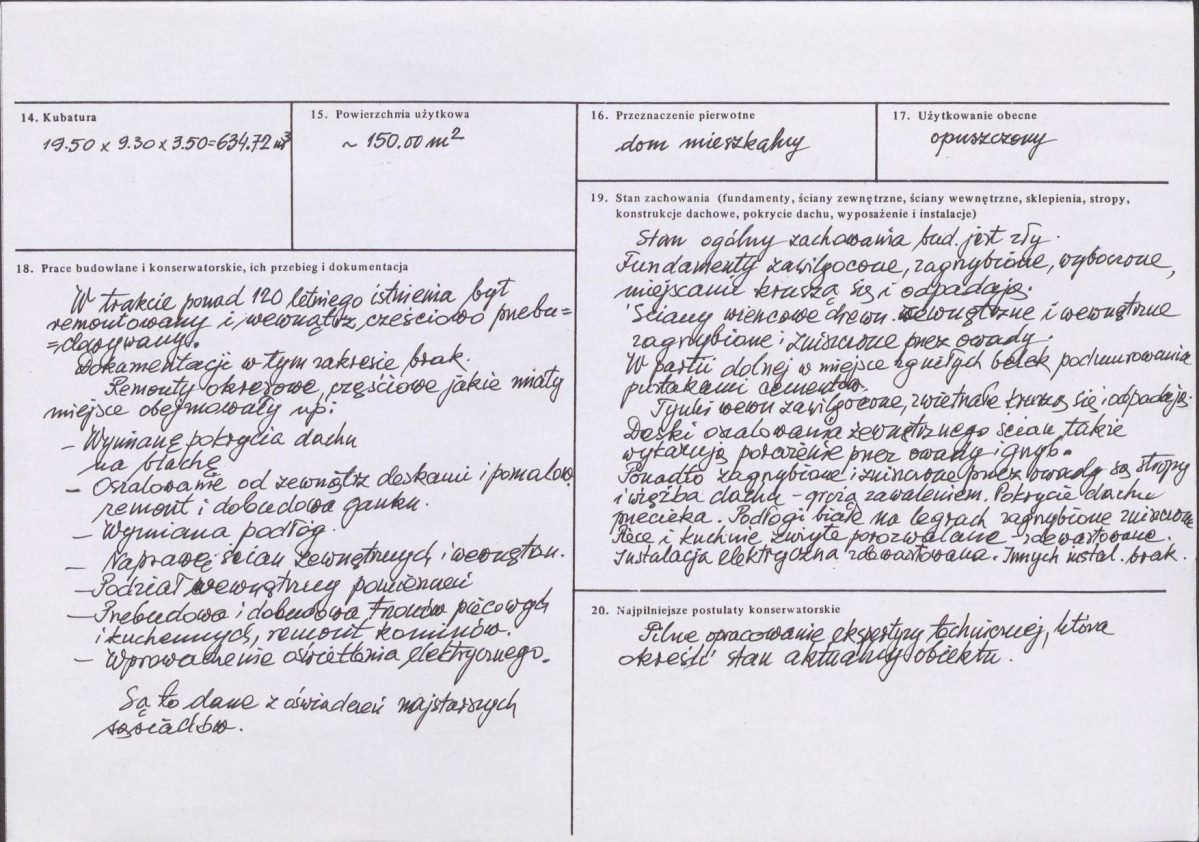 14. Kubatura
19.50 x 9.30 x 3.50=634.72 m³
15. Powierzchnia użytkowa
~ 150.00 m²
16. Przeznaczenie pierwotne
dom mieszkalny
17. Użytkowanie obecne
opuszczony
18. Prace budowlane i konserwatorskie, ich przebieg i dokumentacja
W trakcie ponad 120 letniego istnienia był
remontowany i wewnątrz częściowo przebu=
=dowywany.
Dokumentacji w tym zakresie brak.
Remonty okresowe, częściowe jakie miały
miejsce obejmowały np:
– Wymianę pokrycia dachu
na blachę
– Oszalowanie od zewnątrz deskami i pomalow.
remont i dobudowa ganku.
– Wymiana podłóg.
– Naprawę ścian zewnętrznych i wewnętrzn.
– Podział wewnętrzny pomieszczeń
– Przebudowa i dobudowa trzonów piecowych
i kuchennych, remont kominów.
– Wprowadzenie oświetlenia elektrycznego.
Są to dane z oświadczeń najstarszych
sąsiadów.
19. Stan zachowania (fundamenty, ściany zewnętrzne, ściany wewnętrzne, sklepienia, stropy,
konstrukcje dachowe, pokrycie dachu, wyposażenie i instalacje)
Stan ogólny zachowania bud. jest zły.
Fundamenty zawilgocone, zagrzybione, wyboczone,
miejscami kruszą się i odpadają.
Ściany wieńcowe drewn. zewnętrzne i wewnętrzne
zagrzybione i zniszczone przez owady.
W partii dolnej w miejsce zgniłych belek podmurowania
pustakami cementow.
Tynki wewn zawilgocone, zwietrzałe kruszą się i odpadają.
Deski oszalowania zewnętrznego ścian, także
wykazują porażenie przez owady i grzyb.
Ponadto zagrzybione i zniszczone przez owady są stropy
i więźba dachu – grożą zawaleniem. Pokrycie dachu
przecieka. Podłogi białe na legrach zagrzybione zniszczone
Piece i kuchnie zużyte porozwalane – zdewastowane.
Instalacja elektryczna zdewastowana. Innych instal. brak.
20. Najpilniejsze postulaty konserwatorskie
Pilne opracowanie ekspertyzy technicznej, która
określi stan aktualny obiektu.